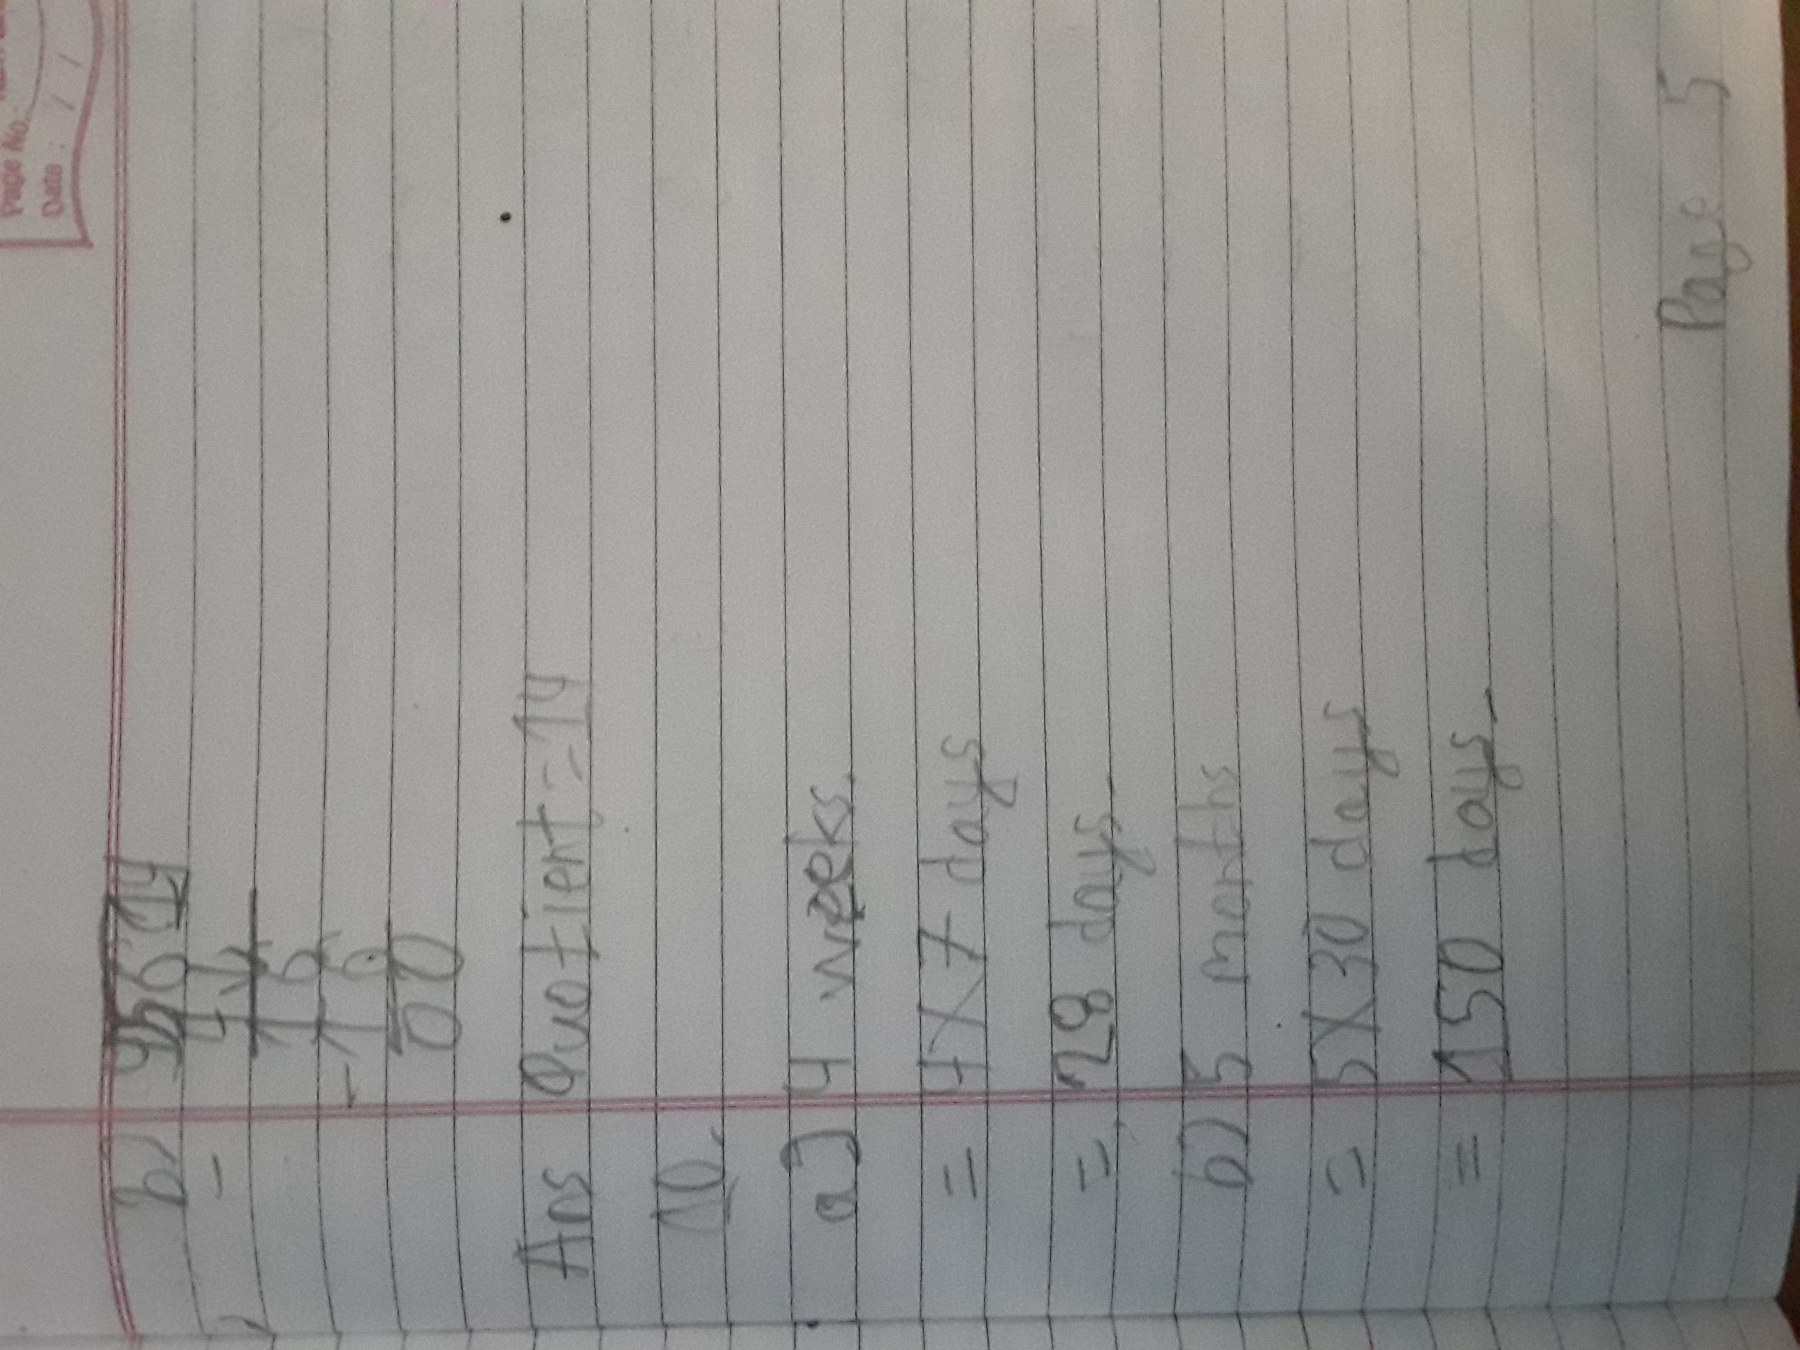 Page No.:
Date: / /
b) 4)56(14
- 4↓
16
- 16
00
Ans Quotient = 14
10.
a) 4 weeks.
= 4X7 days
= 28 days.
b) 5 months
= 5X30 days
= 150 days.
Page 5